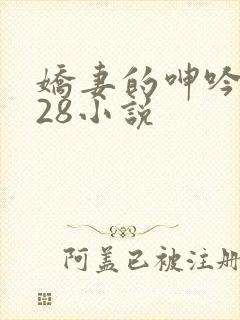 嬌妻的呻吟
28小説
阿盖已被注册